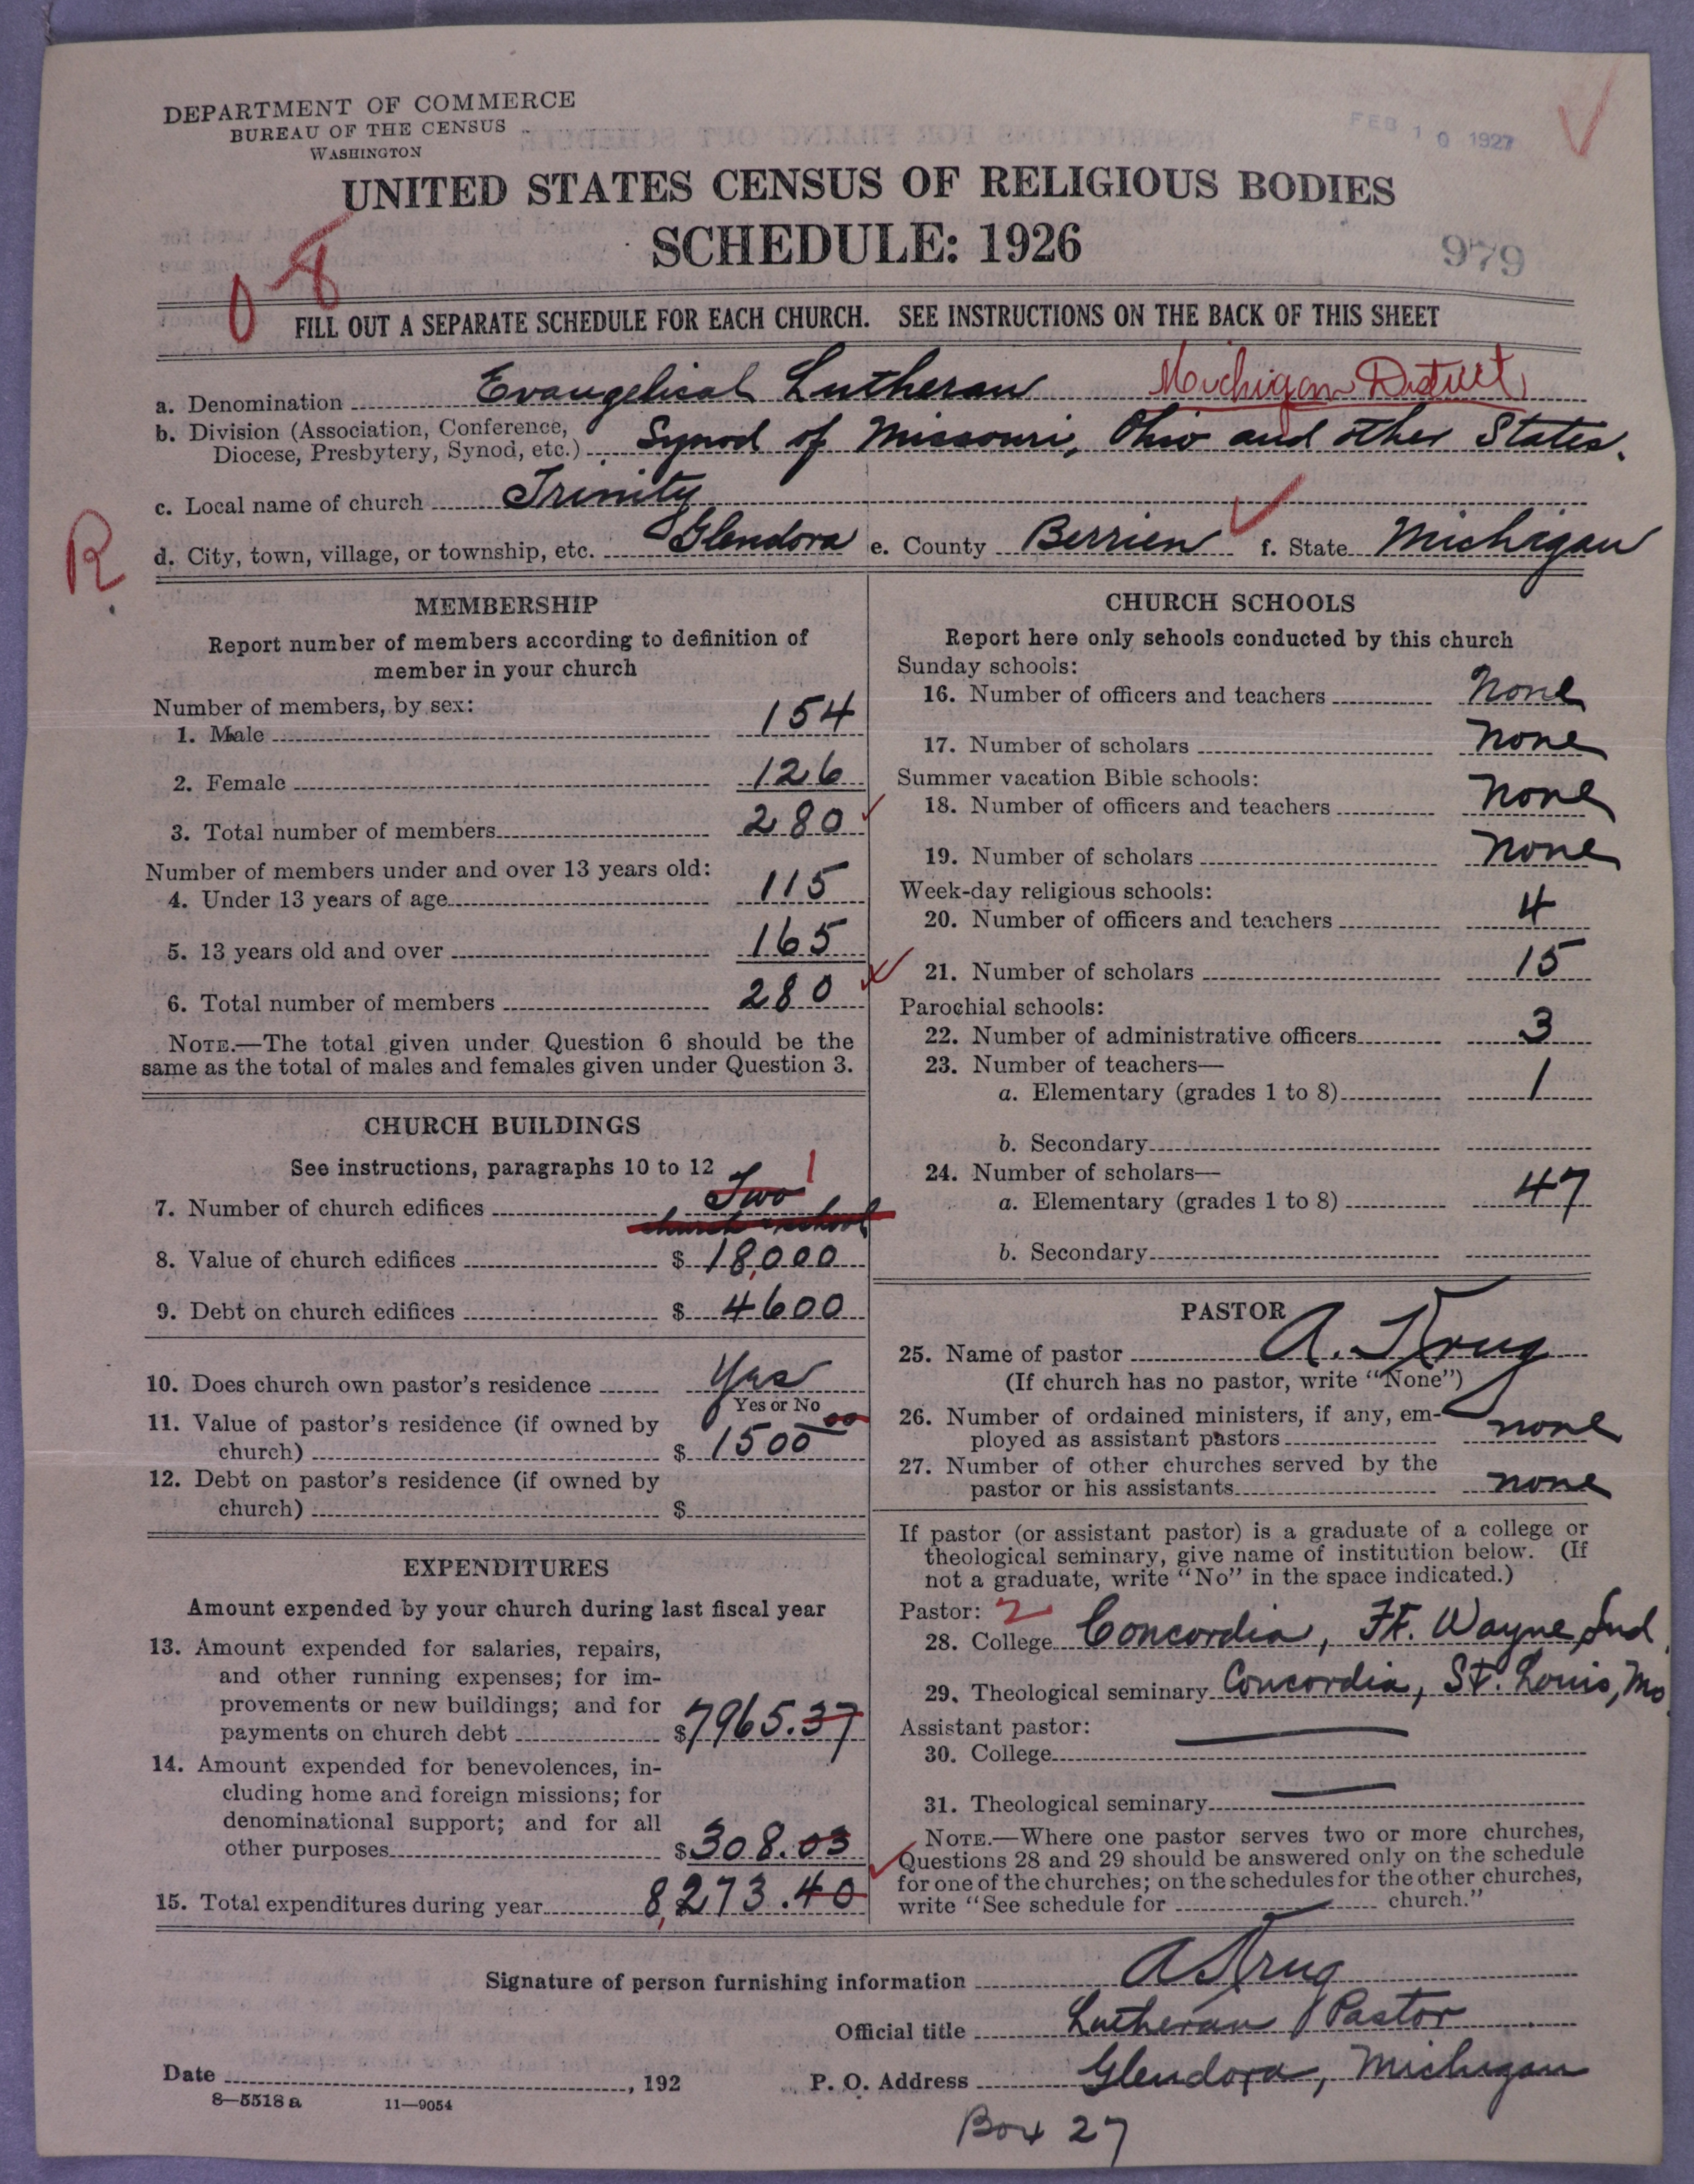 DEPARTMENT OF COMMERCE
BUREAU OF THE CENSUS
WASHINGTON
FEB 10 1927
UNITED STATES CENSUS OF RELIGIOUS BODIES
SCHEDULE: 1926
979
08
FILL OUT A SEPARATE SCHEDULE FOR EACH CHURCH. SEE INSTRUCTIONS ON THE BACK OF THIS SHEET
a. Denomination Evangelical Lutheran Michigan District
b. Division (Association, Conference, Diocese, Presbytery, Synod, etc.) Synod of Missouri, Ohio and other States.
c. Local name of church Trinity
R
d. City, town, village, or township, etc. Glendora e. County Berrien f. State Michigan
MEMBERSHIP
Report number of members according to definition of
member in your church
Number of members, by sex:
1. Male 154
2. Female 126
3. Total number of members 280
Number of members under and over 13 years old:
4. Under 13 years of age 115
5. 13 years old and over 165
6. Total number of members 280
NOTE.—The total given under Question 6 should be the
same as the total of males and females given under Question 3.
CHURCH BUILDINGS
See instructions, paragraphs 10 to 12
7. Number of church edifices Two 1
church + school
8. Value of church edifices $ 18,000
9. Debt on church edifices $ 4600
10. Does church own pastor's residence Yes
Yes or No
11. Value of pastor's residence (if owned by
church) $ 1500 00
12. Debt on pastor's residence (if owned by
church) $
EXPENDITURES
Amount expended by your church during last fiscal year
13. Amount expended for salaries, repairs,
and other running expenses; for im-
provements or new buildings; and for
payments on church debt $7965.37
14. Amount expended for benevolences, in-
cluding home and foreign missions; for
denominational support; and for all
other purposes $308.03
15. Total expenditures during year 8,273.40
CHURCH SCHOOLS
Report here only schools conducted by this church
Sunday schools:
16. Number of officers and teachers None
17. Number of scholars None
Summer vacation Bible schools:
18. Number of officers and teachers None
19. Number of scholars None
Week-day religious schools:
20. Number of officers and teachers 4
21. Number of scholars 15
Parochial schools:
22. Number of administrative officers 3
23. Number of teachers—
a. Elementary (grades 1 to 8) 1
b. Secondary
24. Number of scholars—
a. Elementary (grades 1 to 8) 47
b. Secondary
PASTOR
25. Name of pastor A. Krug
(If church has no pastor, write "None")
26. Number of ordained ministers, if any, em-
ployed as assistant pastors none
27. Number of other churches served by the
pastor or his assistants none
If pastor (or assistant pastor) is a graduate of a college or
theological seminary, give name of institution below. (If
not a graduate, write "No" in the space indicated.)
Pastor: 2
28. College Concordia, Ft. Wayne Ind.
29. Theological seminary Concordia, St. Louis, Mo.
Assistant pastor:
30. College
31. Theological seminary
NOTE.—Where one pastor serves two or more churches,
Questions 28 and 29 should be answered only on the schedule
for one of the churches; on the schedules for the other churches,
write "See schedule for church."
Signature of person furnishing information A Krug
Official title Lutheran Pastor
Date , 192 P. O. Address Glendora, Michigan
8—5518 a 11—9054
Box 27